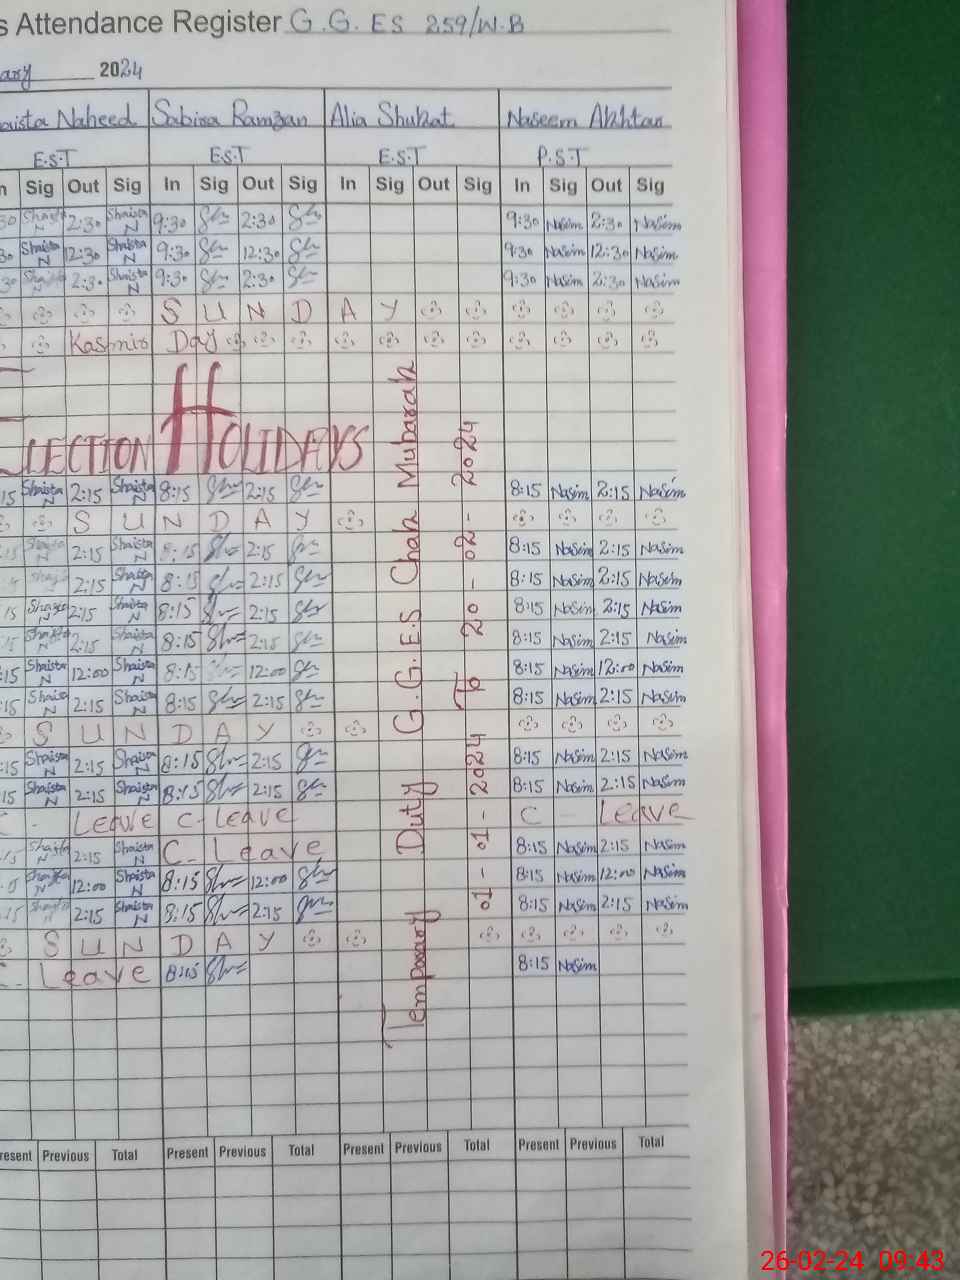 s Attendance Register G.G. ES 259/W.B
ary 2024
aista Naheed Sabira Ramzan Alia Shukat Naseem Akhtar
E.S.T E.S.T E.S.T P.S.T
n Sig Out Sig In Sig Out Sig In Sig Out Sig In Sig Out Sig
30 Shaista N 2:30 Shaista N 9:30 2:30 9:30 Nasim 2:30 Nasim
30 Shaista N 12:30 Shaista N 9:30 12:30 9:30 Nasim 12:30 Nasim
30 Shaista N 2:30 Shaista N 9:30 2:30 9:30 Nasim 2:30 Nasim
S U N D A Y
Kashmir Day
ELECTION HOLIDAYS
15 Shaista N 2:15 Shaista N 8:15 2:15 8:15 Nasim 2:15 Nasim
S U N D A Y
15 Shaista N 2:15 Shaista N 8:15 2:15 8:15 Nasim 2:15 Nasim
2:15 Shaista N 8:15 2:15 8:15 Nasim 2:15 Nasim
15 Shaista N 2:15 Shaista N 8:15 2:15 8:15 Nasim 2:15 Nasim
15 Shaista N 2:15 Shaista N 8:15 2:15 8:15 Nasim 2:15 Nasim
:15 Shaista N 12:00 Shaista N 8:15 12:00 8:15 Nasim 12:00 Nasim
:15 Shaista N 2:15 Shaista N 8:15 2:15 8:15 Nasim 2:15 Nasim
S U N D A Y
:15 Shaista N 2:15 Shaista N 8:15 2:15 8:15 Nasim 2:15 Nasim
15 Shaista N 2:15 Shaista N 8:15 2:15 8:15 Nasim 2:15 Nasim
C - Leave C- Leave C - Leave
15 Shaista N 2:15 Shaista N C- Leave 8:15 Nasim 2:15 Nasim
Shaista N 12:00 Shaista N 8:15 12:00 8:15 Nasim 12:00 Nasim
15 Shaista N 2:15 Shaista N 8:15 2:15 8:15 Nasim 2:15 Nasim
S U N D A Y
C- Leave 8:15 8:15 Nasim
Temporary Duty G.G.E.S Chak Mubarak
01 - 01 - 2024 To 20 - 02 - 2024
resent Previous Total Present Previous Total Present Previous Total Present Previous Total
26-02-24 09:43